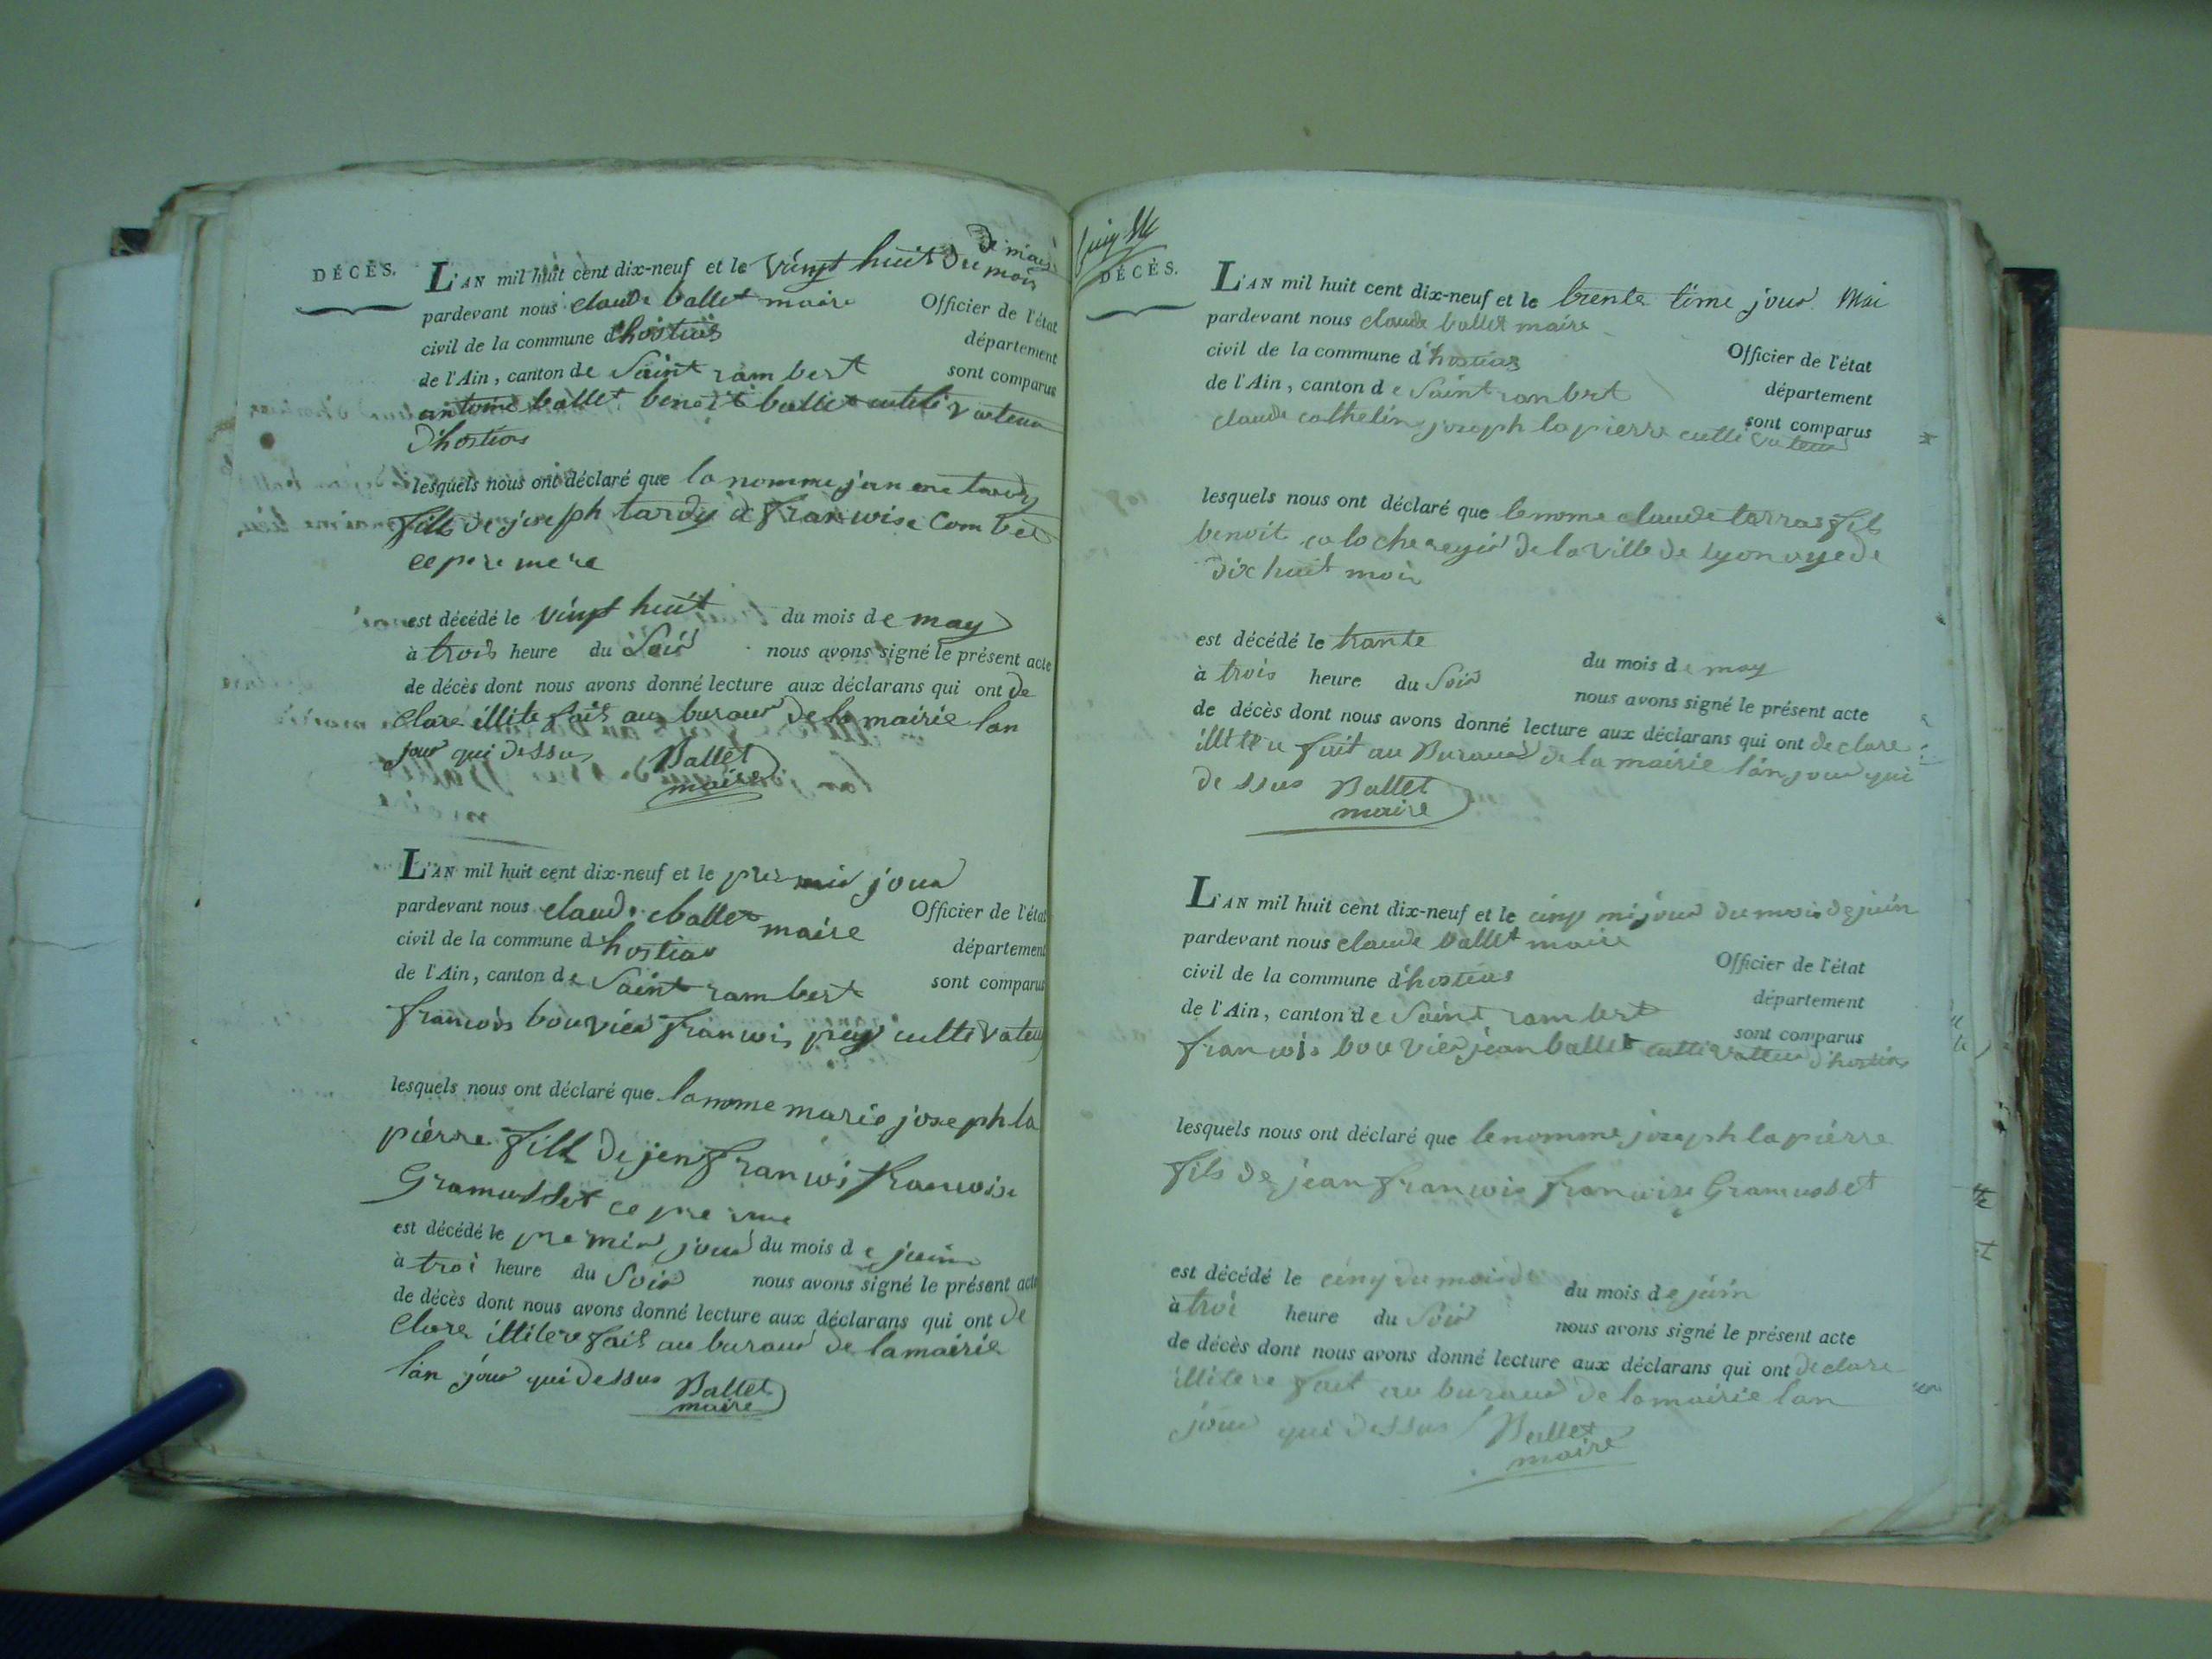 DÉCÈS.
L'AN mil huit cent dix-neuf et le vingt huit du mois
de mais
pardevant nous claude ballet maire Officier de l'état
civil de la commune d'hostias département
de l'Ain, canton de Saint rambert sont comparus
antoine ballet benoit ballet cultivateur
d'hostias
lesquels nous ont déclaré que la nomme tardy
fille de joseph tardy et francoise Combet
ce pere mere
est décédé le vingt huit du mois de may
à trois heure du Soir nous avons signé le présent acte
de décès dont nous avons donné lecture aux déclarans qui ont de
clare illite fait au buraux de la mairie lan
jour qui dessus Ballet
maire
L'AN mil huit cent dix-neuf et le premier jour
pardevant nous claude ballet maire Officier de l'état
civil de la commune d hostias département
de l'Ain, canton de Saint rambert sont comparus
francois bouvier francois puy cultivateur
lesquels nous ont déclaré que la nome marie joseph la
pierre fille de jen francois francoise
Gramusset ce pre mre
est décédé le premier jour du mois de juin
à troi heure du Soir nous avons signé le présent acte
de décès dont nous avons donné lecture aux déclarans qui ont de
clare illitere fait au buraux de la mairie
l'an jour qui dessus Ballet
maire
DÉCÈS.
L'AN mil huit cent dix-neuf et le trente time jour Mai
pardevant nous claude ballet maire Officier de l'état
civil de la commune d'hostias département
de l'Ain, canton de Saint ranbert sont comparus
claude cathelin joseph la pierre cultivateur
lesquels nous ont déclaré que le nome claude terras fils
benoit de la ville de lyon agé de
dix huit mois
est décédé le trante du mois de may
à trois heure du Soir nous avons signé le présent acte
de décès dont nous avons donné lecture aux déclarans qui ont declare
fait au Buraux de la mairie l'an jour qui
dessus Ballet
maire
L'AN mil huit cent dix-neuf et le cinq mi jour du mois de juin
pardevant nous claude ballet maire Officier de l'état
civil de la commune d'hostias département
de l'Ain, canton de Saint rambert sont comparus
francois bouvier jean ballet cultivateur d'hostias
lesquels nous ont déclaré que le nomme joseph la pierre
fils de jean francois francoise Gramusset
est décédé le cinq du mois de du mois de juin
à troi heure du Soir nous avons signé le présent acte
de décès dont nous avons donné lecture aux déclarans qui ont declare
illitere fait au buraux de la mairie lan
jour qui dessus Ballet
maire